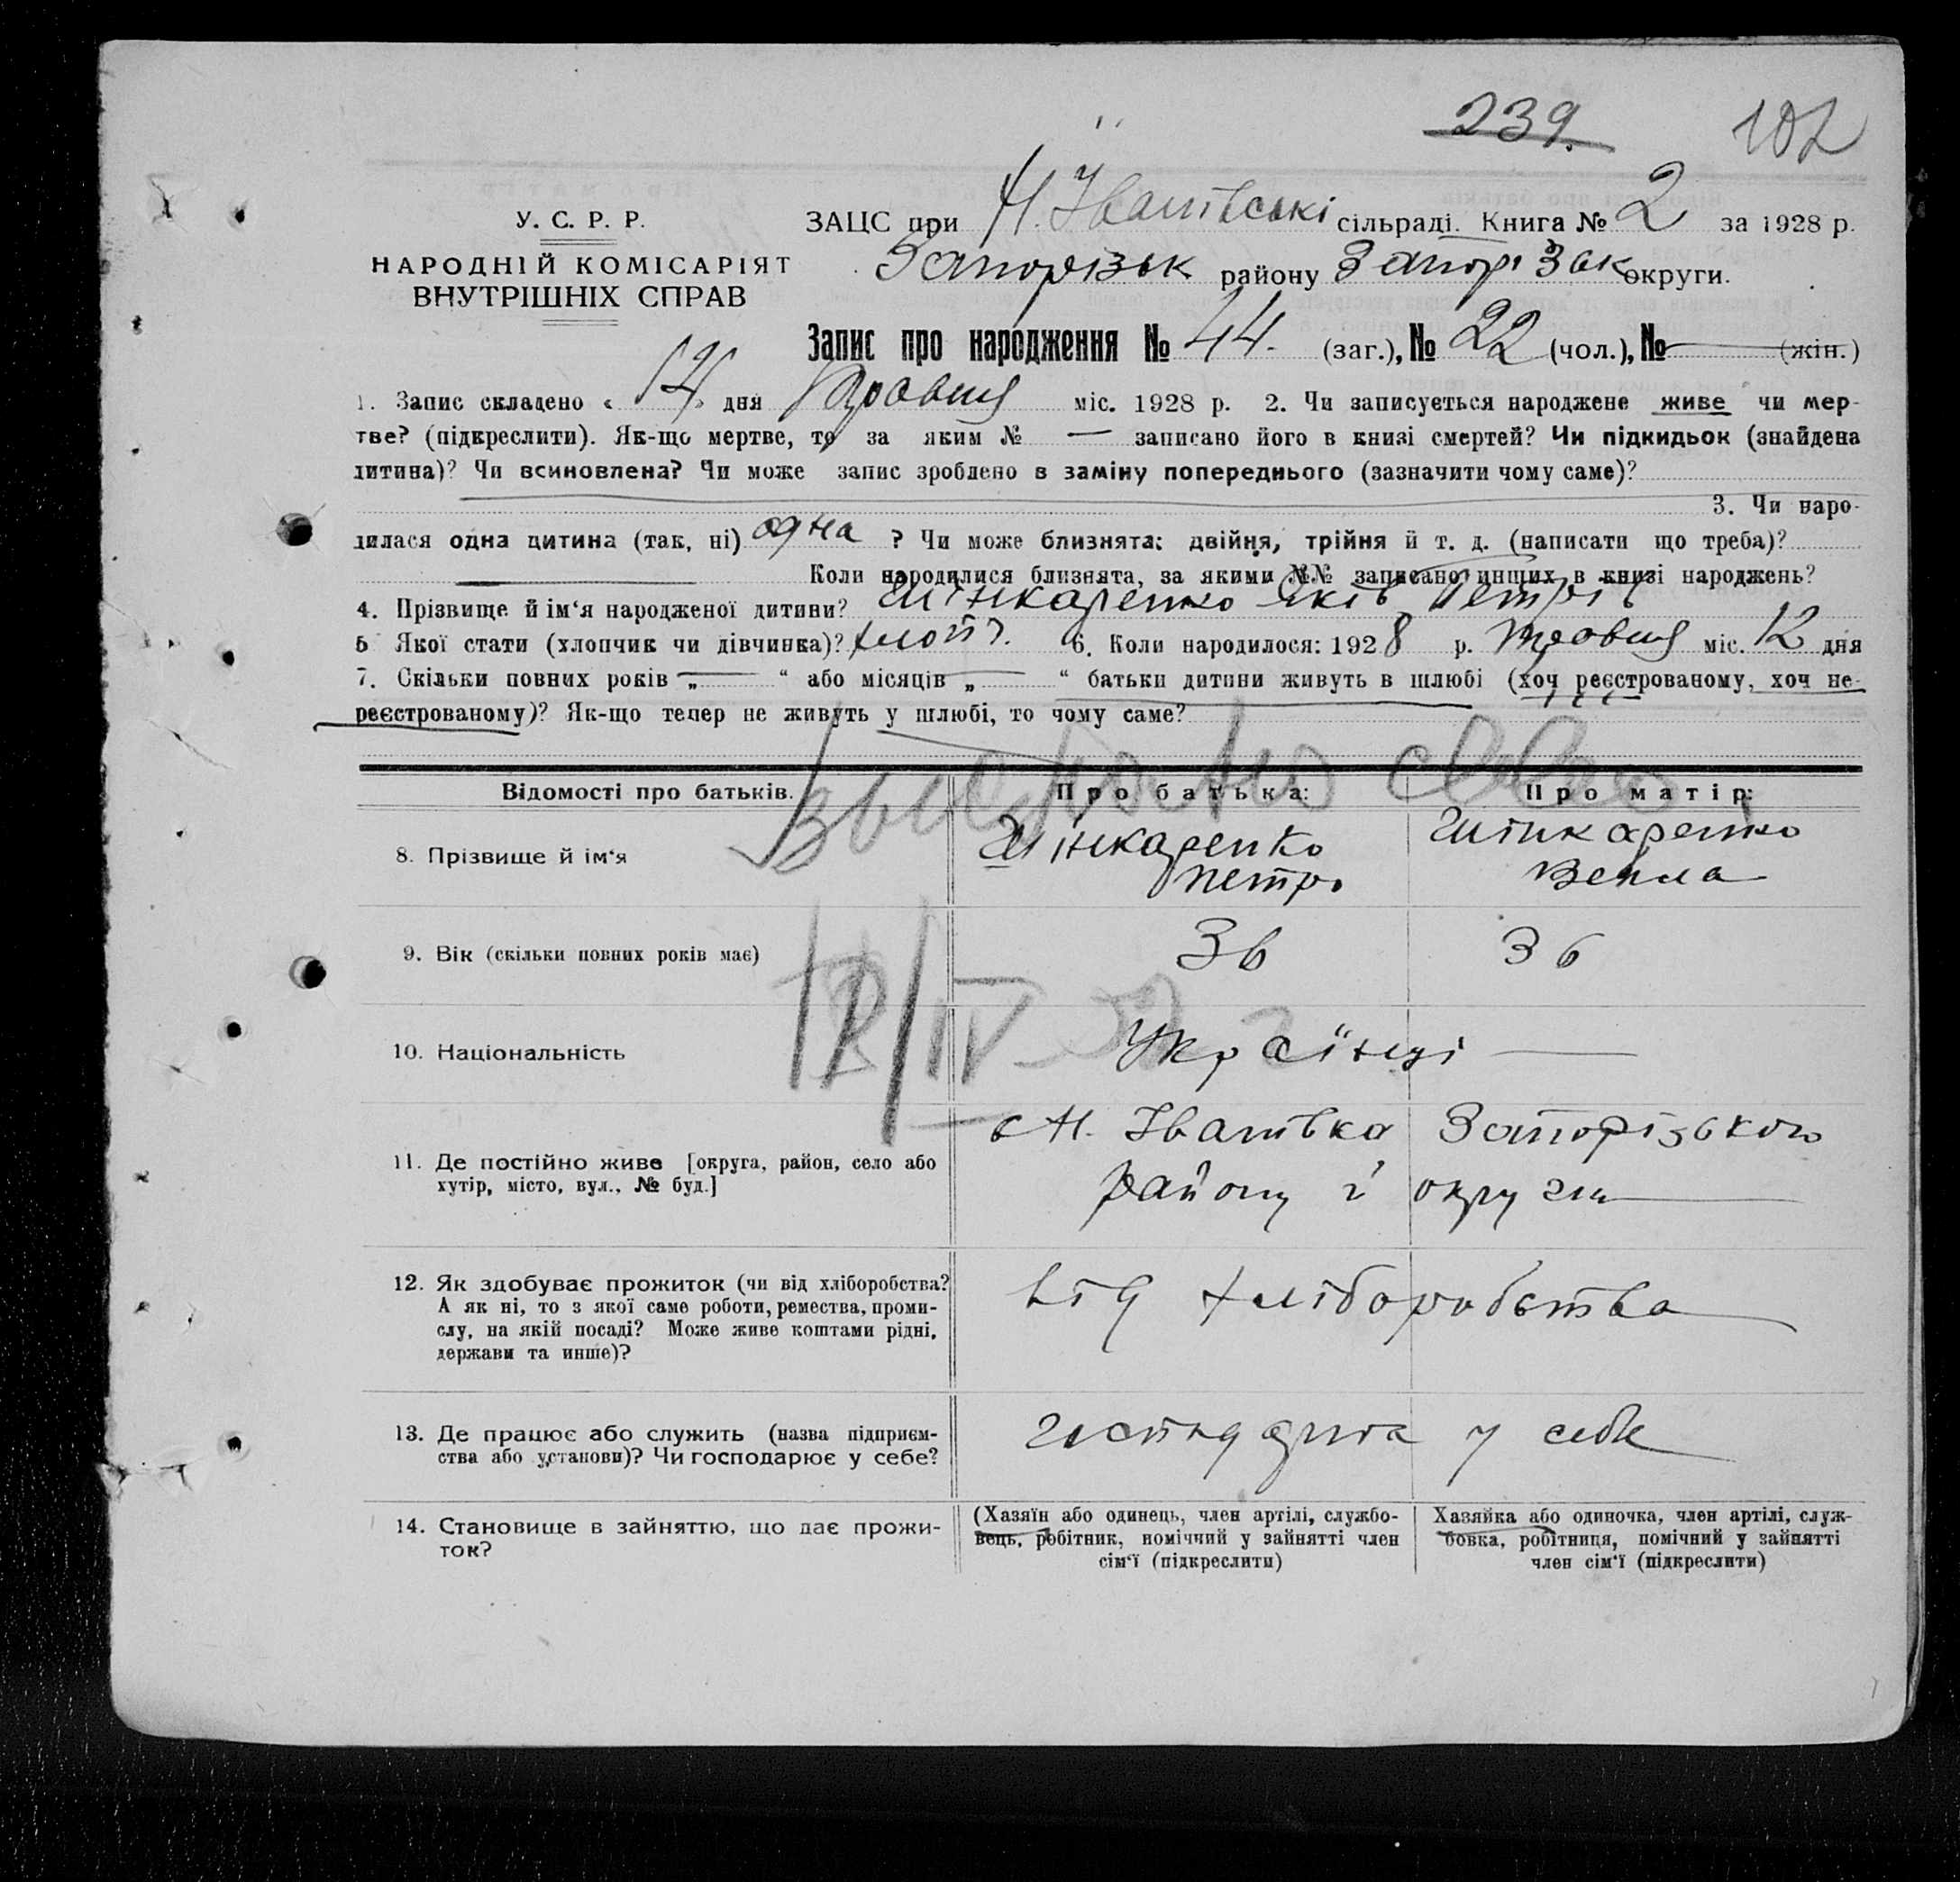 239.
102
У. С. Р. Р.
НАРОДНІЙ КОМІСАРІЯТ
ВНУТРІШНІХ СПРАВ
ЗАЦС при Н. Іванівські сільраді. Книга № 2 за 1928 р.
Запорізьк району Запорізьк округи.
Запис про народження № 44. (заг.), № 22 (чол.), № — (жін.)
1. Запис складено « 14 » дня Травня міс. 1928 р. 2. Чи записується народжене живе чи мер-
тве? (підкреслити). Як-що мертве, то за яким № — записано його в книзі смертей? Чи підкидьок (знайдена
дитина)? Чи всиновлена? Чи може запис зроблено в заміну попереднього (зазначити чому саме)?
3. Чи наро-
дилася одна дитина (так, ні) одна ? Чи може близнята: двійня, трійня й т. д. (написати що треба)?
Коли народилися близнята, за якими №№ записано инших в книзі народжень?
4. Прізвище й ім‘я народженої дитини? Шінкаренко Яків Петрів
5 Якої стати (хлопчик чи дівчинка)? хлопч. 6. Коли народилося: 1928 р. травня міс. 12 дня
7. Скільки повних років „ — “ або місяців „ — “ батьки дитини живуть в шлюбі (хоч реєстрованому, хоч не-
реєстрованому)? Як-що тепер не живуть у шлюбі, то чому саме?
Відомості про батьків. Про батька: Про матір:
8. Прізвище й ім‘я
Шінкаренко
Петро
Шінкаренко
Векла
9. Вік (скільки повних років має) 36 36
10. Національність Українці —
11. Де постійно живе [округа, район, село або
хутір, місто, вул., № буд.]
с Н. Іванівка Запорізького
району і округи —
12. Як здобуває прожиток (чи від хліборобства?
А як ні, то з якої саме роботи, ремества, проми-
слу, на якій посаді? Може живе коштами рідні,
держави та инше)?
від хліборобства
13. Де працює або служить (назва підприєм-
ства або установи)? Чи господарює у себе?
у себе
14. Становище в зайняттю, що дає прожи-
ток?
(Хазяїн або одинець, член артілі, службо-
вець, робітник, помічний у зайнятті член
сім‘ї (підкреслити)
Хазяйка або одиночка, член артілі, служ-
бовка, робітниця, помічний у зайнятті
член сім‘ї (підкреслити)